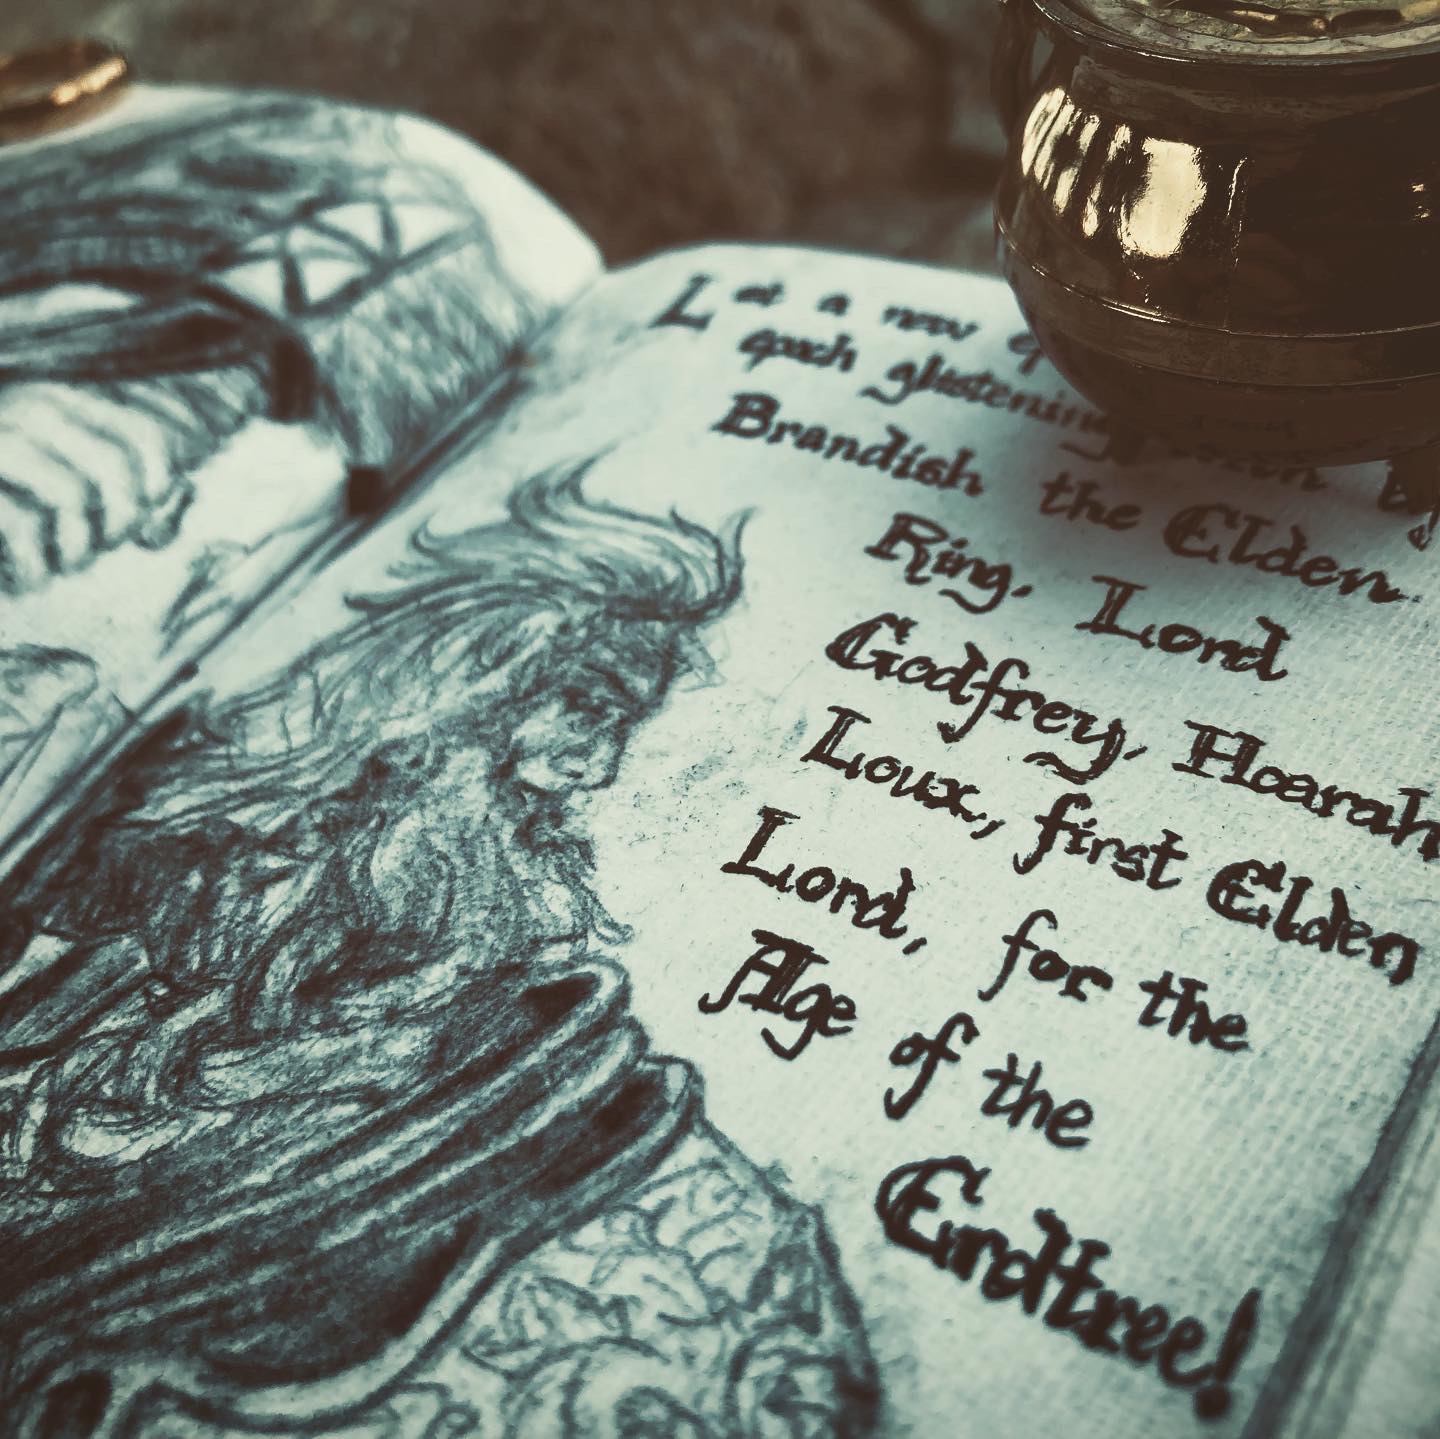 Let a new
epoch glistening
Brandish the Elden
Ring. Lord
Godfrey, Hoarah
Loux, first Elden
Lord, for the
Age of the
Erdtree!